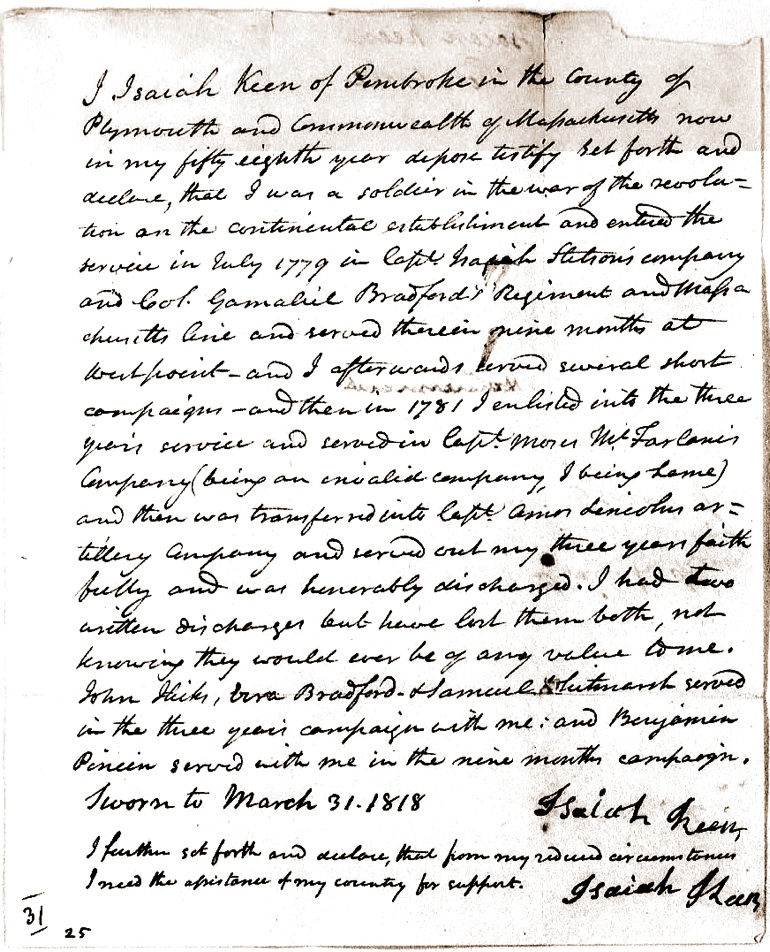 I Isaiah Keen of Pembroke in the County of
Plymouth and Commonwealth of Massachusetts now
in my fifty eighth year depose testify set forth and
declare, that I was a soldier in the war of the revolu=
tion on the continental establishment and entered the
service in July 1779 in Capt. Isaiah Stetson's company
and Col. Gamaliel Bradford's Regiment and Massa
chusetts line and served therein nine months at
West point - and I afterwards served several short
campaigns - and then in 1781 I enlisted into the three
years service and served in Capt. Moses Mc Farlan's
Company (being an invalid company, I being lame)
and then was transferred into Capt. Amos Lincolns ar=
tillery Company and served out my three years faith
fully and was honorably discharged. I had two
written discharges but have lost them both, not
knowing they would ever be of any value to me.
John Hicks, Bradford & Samuel served
in the three years campaign with me: and Benjamin
served with me in the nine months campaign.
Sworn to March 31. 1818
Isaiah Keen
I further set forth and declare, that from my reduced circumstances
I need the assistance of my country for support.
Isaiah Keen
31
25